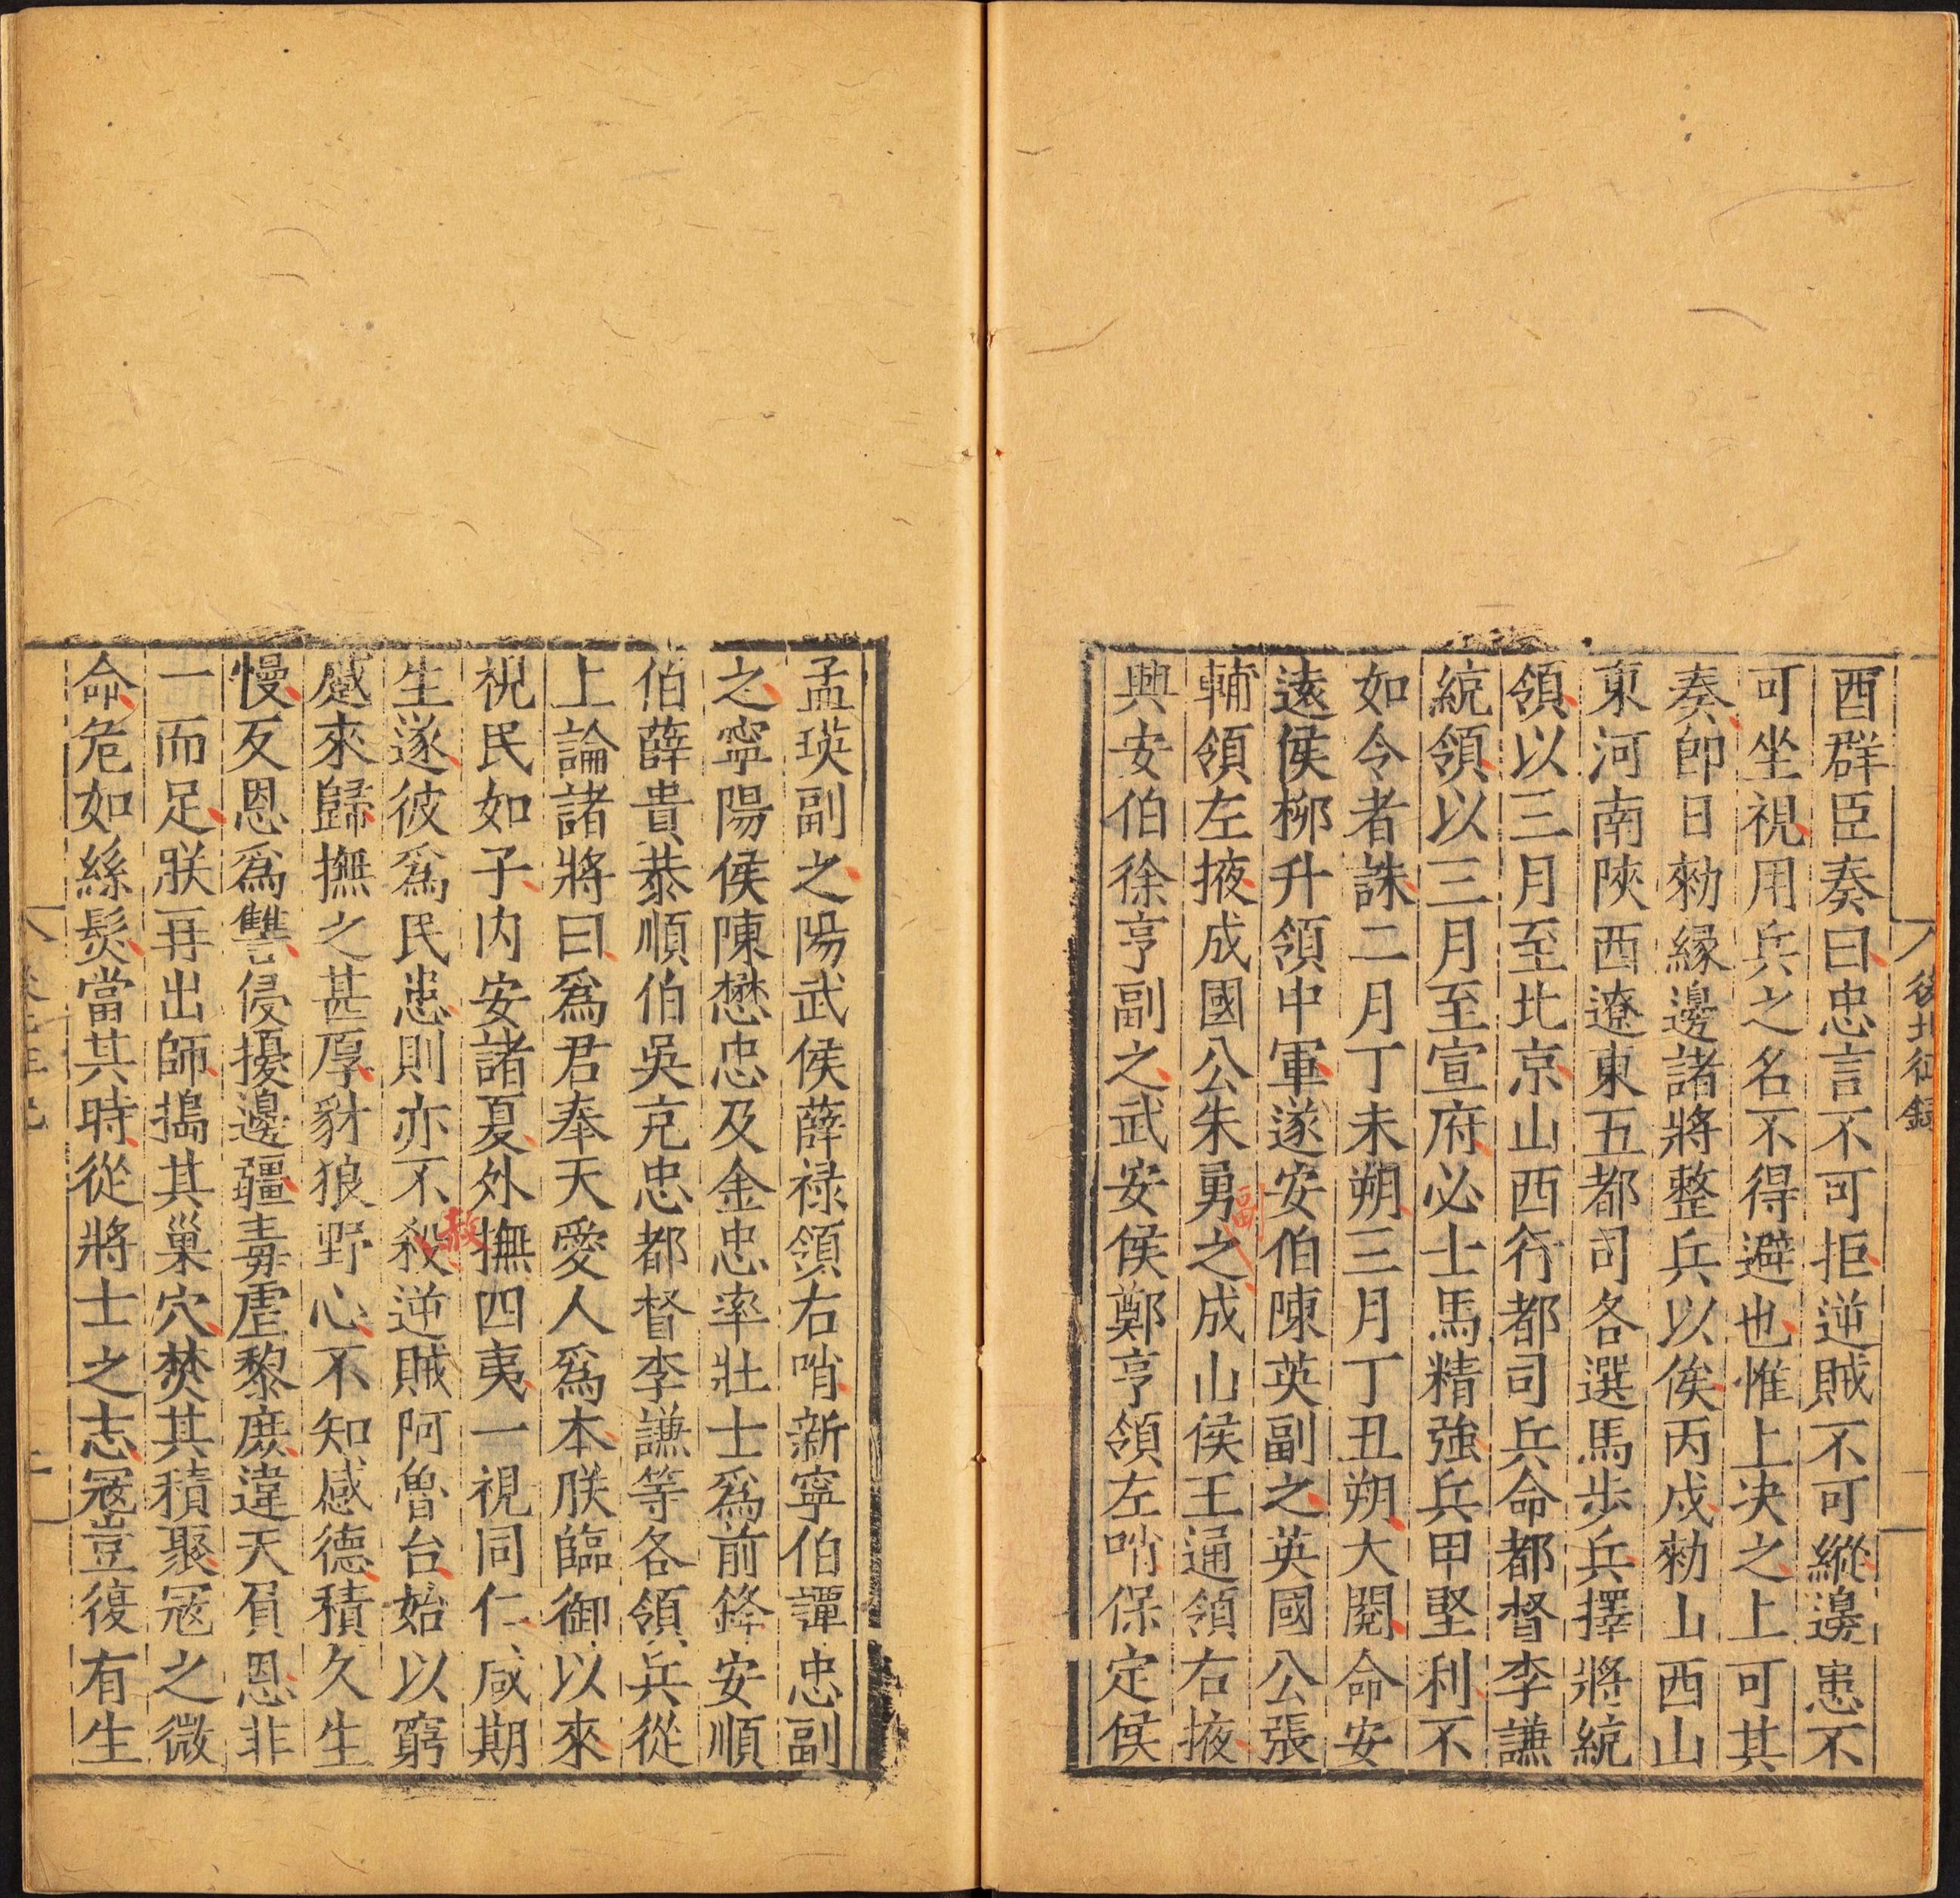 後北征錄
酉群臣奏曰忠言不可拒逆賊不可縱邊患不
可坐視用兵之名不得避也惟上决之上可其
奏即日勑緣邊諸將整兵以俟丙戌勑山西山
東河南陝西遼東五都司各選馬步兵擇將統
領以三月至北京山西行都司兵命都督李謙
統領以三月至宣府必士馬精強兵甲堅利不
如令者誅二月丁未朔三月丁丑朔大閱命安
遠侯柳升領中軍遂安伯陳英副之英國公張
輔領左掖成國公朱勇之成山侯王通領右掖
興安伯徐亨副之武安侯鄭亨領左哨保定侯
孟瑛副之陽武侯薛祿領右哨新寧伯譚忠副
之寧陽侯陳懋忠及金忠率壯士爲前鋒安順
伯薛貴恭順伯吳克忠都督李謙等各領兵從
上諭諸將曰爲君奉天愛人爲本朕臨御以來
視民如子内安諸夏外撫四夷一視同仁咸期
生遂彼爲民患則亦不殺逆賊阿魯台始以窮
蹙來歸撫之甚厚豺狼野心不知感德積久生
慢反恩爲讐侵擾邊疆毒虐黎庶違天負恩非
一而足朕再出師搗其巢穴焚其積聚冦之微
命危如絲髮當其時從將士之志冦豈復有生
赦